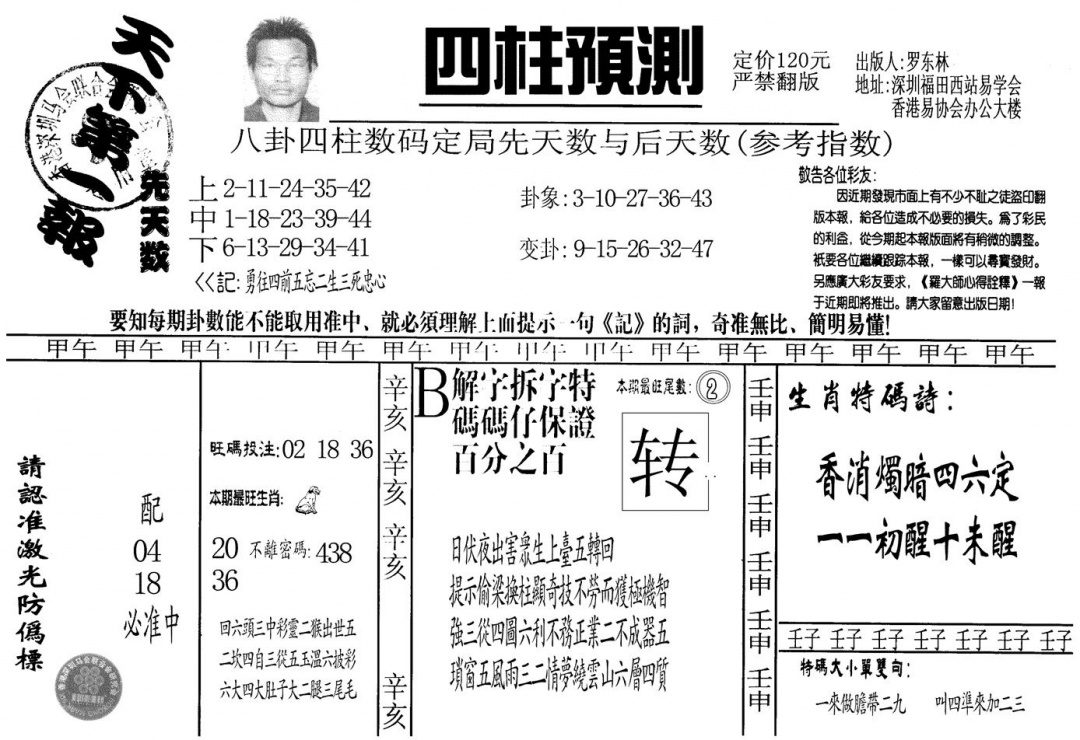 天下第一報
四柱預測
定价120元
严禁翻版
出版人:罗东林
地址:深圳福田西站易学会
香港易协会办公大楼
八卦四柱数码定局先天数与后天数(参考指数)
先天数
上2-11-24-35-42
中1-18-23-39-44
下6-13-29-34-41
<<記:勇往四前五忘二生三死忠心
卦象:3-10-27-36-43
变卦:9-15-26-32-47
敬告各位彩友:
因近期發現市面上有不少不耻之徒盜印翻
版本報，給各位造成不必要的損失。為了彩民
的利益，從今期起本報版面將有稍微的調整。
祇要各位繼續跟踪本報，一樣可以尋寶發財。
另應廣大彩友要求，《羅大師心得詮釋》一報
于近期即將推出。請大家留意出版日期!
要知每期卦數能不能取用准中、就必須理解上面提示一句《記》的詞，奇准無比、簡明易懂!
甲午 甲午 甲午 甲午 甲午 甲午 甲午 甲午 甲午 甲午 甲午 甲午 甲午 甲午 甲午
請認准激光防僞標
配
04
18
必准中
旺碼投注:02 18 36
本期最旺生肖:
20 不離密碼:438
36
回六頭三中彩靈二猴出世五
二坎四自三從五玉溫六披彩
六大四大肚子大二腿三尾毛
辛亥
辛亥
辛亥
辛亥
B解字拆字特
碼碼仔保證
百分之百
本期最旺尾數:②
转
日伏夜出害衆生上臺五轉回
提示偷梁換柱顯奇技不勞而獲極機智
強三從四圖六利不務正業二不成器五
瑣窗五風雨三二情夢繞雲山六層四質
壬申
壬申
壬申
壬申
壬申
壬申
生肖特碼詩:
香消燭暗四六定
一一初醒十未醒
壬子 壬子 壬子 壬子 壬子 壬子 壬子
特碼大小單雙句:
一來做膽帶二九 叫四準來加二三